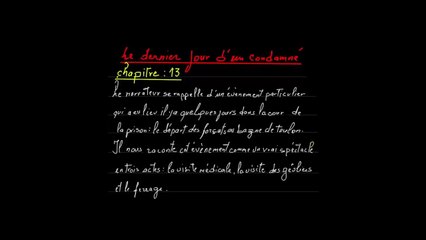 Le dernier jour d'un condamné
chapitre : 13
Le narrateur se rappelle d'un évènement particulier
qui a eu lieu il y a quelques jours dans la cour de
la prison : le départ des forçats au bagne de toulon.
Il nous raconte cet évènement comme un vrai spéctacle
en trois actes : la visite médicale, la visite des geôliers
et le ferrage.